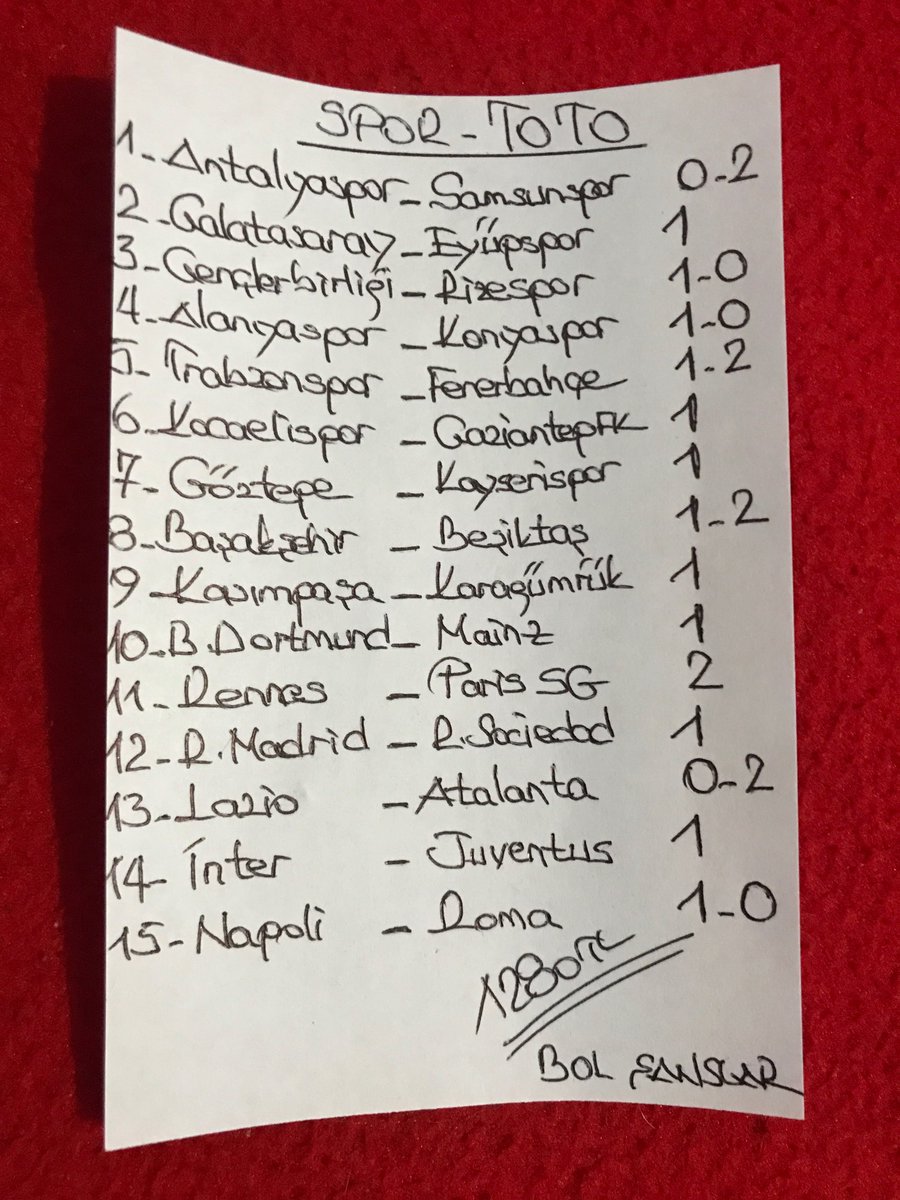 SPOR-TOTO
1-Antalyaspor-Samsunspor 0-2
2-Galatasaray-Eyüpspor 1
3-Gençlerbirliği-Rizespor 1-0
4-Alanyaspor-Konyaspor 1-0
5-Trabzonspor-Fenerbahçe 1-2
6-Kocaelispor-GaziantepFK 1
7-Göztepe-Kayserispor 1
8-Başakşehir-Beşiktaş 1-2
9 Kasımpaşa-Karagümrük 1
10-B.Dortmund-Mainz 1
11-Rennes-Paris SG 2
12-R.Madrid-R.Sociedad 1
13-Lazio-Atalanta 0-2
14-İnter-Juventus 1
15-Napoli-Roma 1-0
1280TL
BOL ŞANSLAR